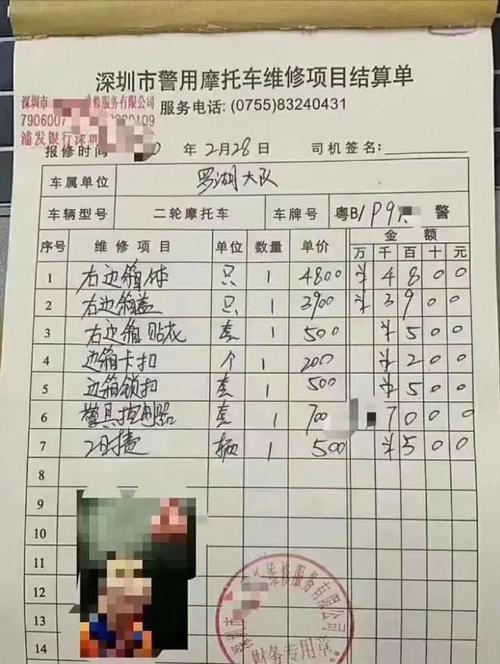 深圳市警用摩托车维修项目结算单
深圳市 维修服务有限公司
服务电话: (0755)83240431
7906007
浦发银行深圳
报修时间 年 2月28日 司机签名:
车属单位 罗湖大队
车辆型号 二轮摩托车 车牌号 粤B1P9 警
序号 维修项目 单位 数量 单价 金额
万 千 百 十 元
1 右边箱体 只 1 4800 ¥ 4 8 0 0
2 右边箱盖 只 1 3900 ¥ 3 9 0 0
3 右边箱贴花 套 1 500 ¥ 5 0 0
4 边箱卡扣 个 1 200 ¥ 2 0 0
5 边箱锁扣 套 1 500 ¥ 5 0 0
6 警具控制器 套 1 700 7 0 0
7 工时费 辆 1 500 ¥ 5 0 0
8
9
10
11
12
13
14
维修服务有限公司
财务专用章